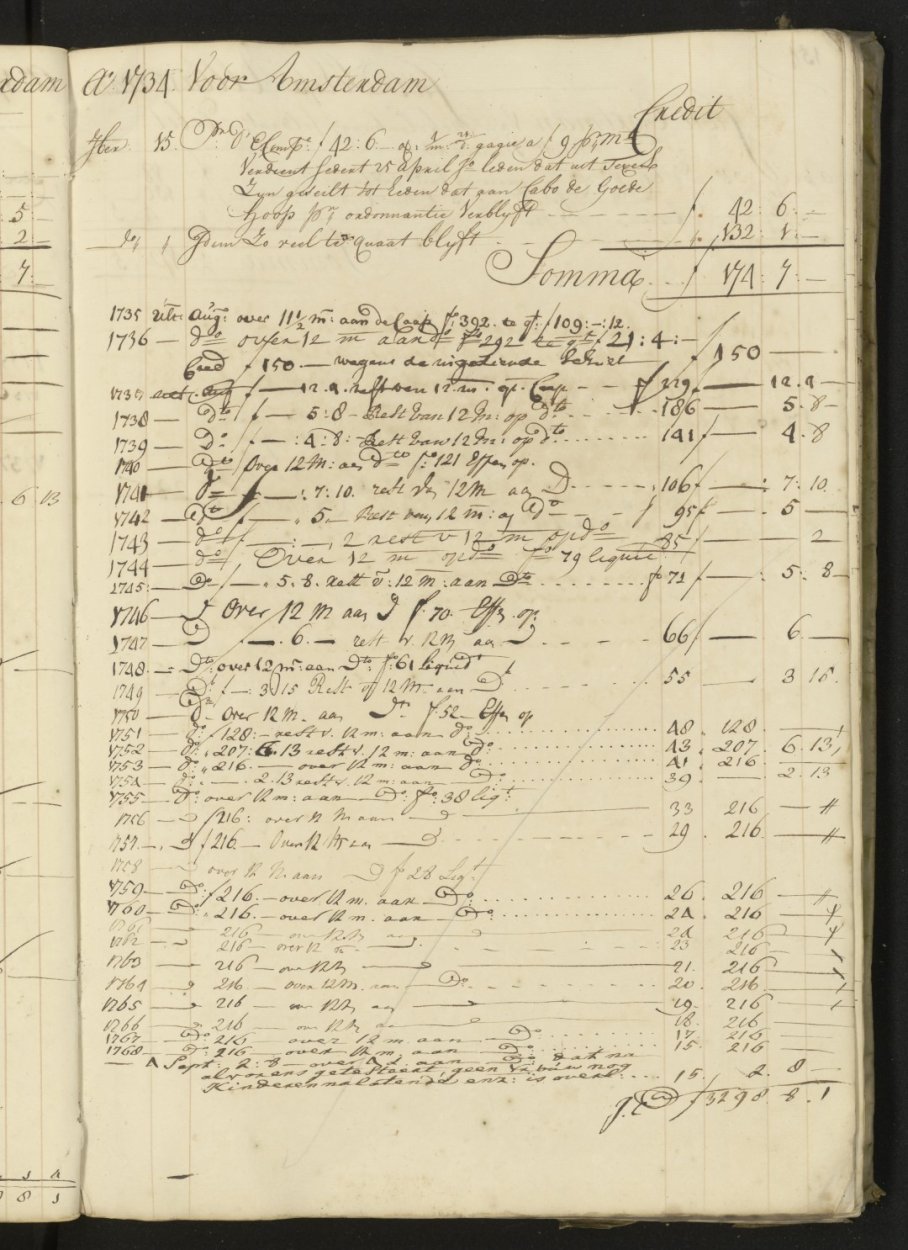 rdam
5
2
7
6 13
Ao 1734 Voor Amsterdam
Credit
15 Pr d' Exempr f 42:6 gagie a f 9 pr md
Verdient sedert 25 April Jo leden dat uit Texel
Zyn geseilt tot heden dat aan Cabo de Goede
Hoop pr ordonnantie Verblyft f 42:6:-
do Idem Zo veel te quaat blyft 132:1:-
Somma f 174:7:-
1735 ulto Augo: over 11½ m: aan de Caap fo: 392 f 109:-:12.
1736 do over 12 m aan do fo 292 f 21:4:-
f 150 - wegens de f 150 -
1737 f - 12.9. rest van 12 m: op Caap 229 12.9
1738 - do f - 5:8 - Rest van 12 m: op dto 186 5.8
1739 Do f - :4:8: Rest van 12 m: op dto 141 f 4.8
1740 - dto over 12 M: aan dto fo: 121 Effen op.
1741 do f - :7:10. rest van 12 M aan D 106 f - : 7:10
1742 dto f - 5 - Rest van 12 m: aan dto 95 f - 5 -
1743 do f - 2 rest v 12 m op do 85 2
1744 do Over 12 m op do fo 79 liquit
1745: Do f - 5.8. rest v: 12 m: aan Do fo 71 f - : 5:8
1746 - D Over 12 M aan D f. 70 - Effen op
1747 - D - 6. - rest v 12 M aan D 66 f - 6. -
1748 - Dto: over 12 m: aan Dto: fo: 61 liquidt
1749 - Do f - 3:15 Rest v 12 M - aan Do 55 3 15.
1750 do - over 12 M. aan Do f. 52 - Effen op
1751 - do: f 128: - rest v. 12 m: aan do: 48. 128
1752 - do: 207: 6.13 rest v. 12 m: aan do 43. 207. 6.13
1753 - do: 216. - over 12 m: aan do: 41. 216
1754 - do 2.13 rest v. 12 m: aan Do 39. 2.13
1755 - Do: over 12 m: aan - Do: fo: 38 liqt
1756 - f 216: over 12 M aan - 33 216
1757. - f 216 - Over 12 M aan 29. 216
1758 over 12 M aan D fo 28 Liqt
1759 Do: f 216. - over 12 m. aan Do: 26 216
1760 - Do: 216. - over 12 m. aan - Do: 24. 216
216 - over 12 M 24 216
1762 216 - over 12 m 23 216
1763 216 - over 12 M 21. 216
1764 216 - over 12 M. aan Do 20. 216
1765 216 over 12 M aan 19. 216
1766 - 216 - over 12 M aan 18. 216
1767 - Do: 216 - over 12 m. aan Do 17. 216
1768 - D: 216 - over 12 m aan Do 15 216
- A Sept: 2:8 - over 4 d. aan - Do: dat na
alvorens getesteert, geen vrouw nog
Kinderen nalatende enz: is overl: 15, 2. 8 -
f 3298. 8. 1